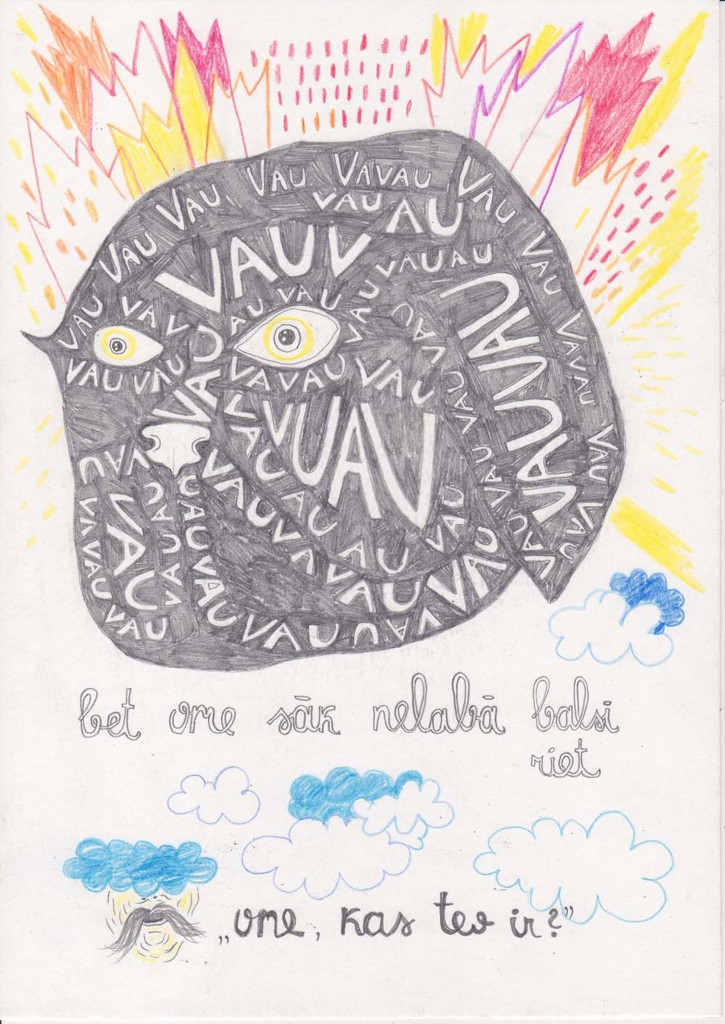 VAU VAU VAU VAVAU VAU VAU
VAU VAU AU
VAUV VAUAU
VAU VAV AU VAU VAU VAU
VAU VAU VAU VAVAU VAU
VAUVAU VAVAU
VAU VUAV VAU VAU
VAU VAU VAU VAU VAU
VAVAU VAU VAU VAU AU VAU
VAU VAU VAU VAU VAU
bet ome sāk nelabā balsi
riet
„ome, kas tev ir?”